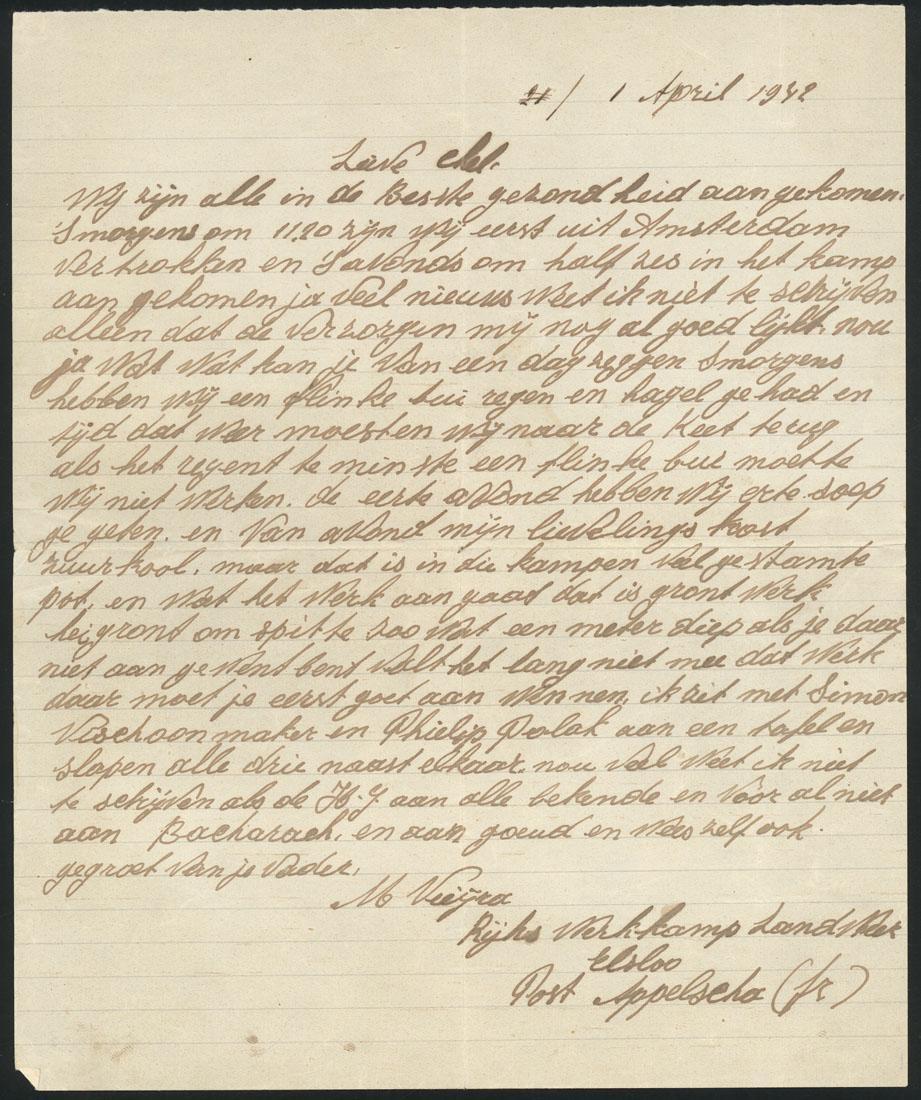 1 April 1942
Lieve
Wij zijn alle in de Beste gezondheid aangekomen.
Smorgens om 11.20 zijn wij eerst uit Amsterdam
vertrokken en S'avonds om half zes in het kamp
aan gekomen ja veel nieuws weet ik niet te schijven
alleen dat de verzorgen mij nog al goed lijkt. nou
ja wat wat kan je van een dag zeggen Smorgens
hebben wij een flinke bui regen en hagel gehad en
tijd dat weer moesten wij naar de Keet terug
als het regent te minste een flinke bui moette
wij niet werken. de eerte avond hebben wij erte soep
ge geten. en van avond mijn lievelings kost
zuurkool. maar dat is in die kampen val gestamte
pot, en wat het werk aan gaat dat is gront werk
hei gront om spitte zoo wat een meter diep als je daar
niet aan gewent bent valt het lang niet mee dat werk
daar moet je eerst goet aan winnen, ik zit met Simon
Visschoonmaker en Philip Polak aan een tafel en
slapen alle drie naast elkaar. nou veel weet ik niet
te schijven als de H.G aan alle bekende en voor al niet
aan Bacharach, en aan goeud en wees zelf ook.
gegroet van je vader.
M Vieijra
Rijks werkkamp Landweer
Elsloo
Post Appelscha (fr)